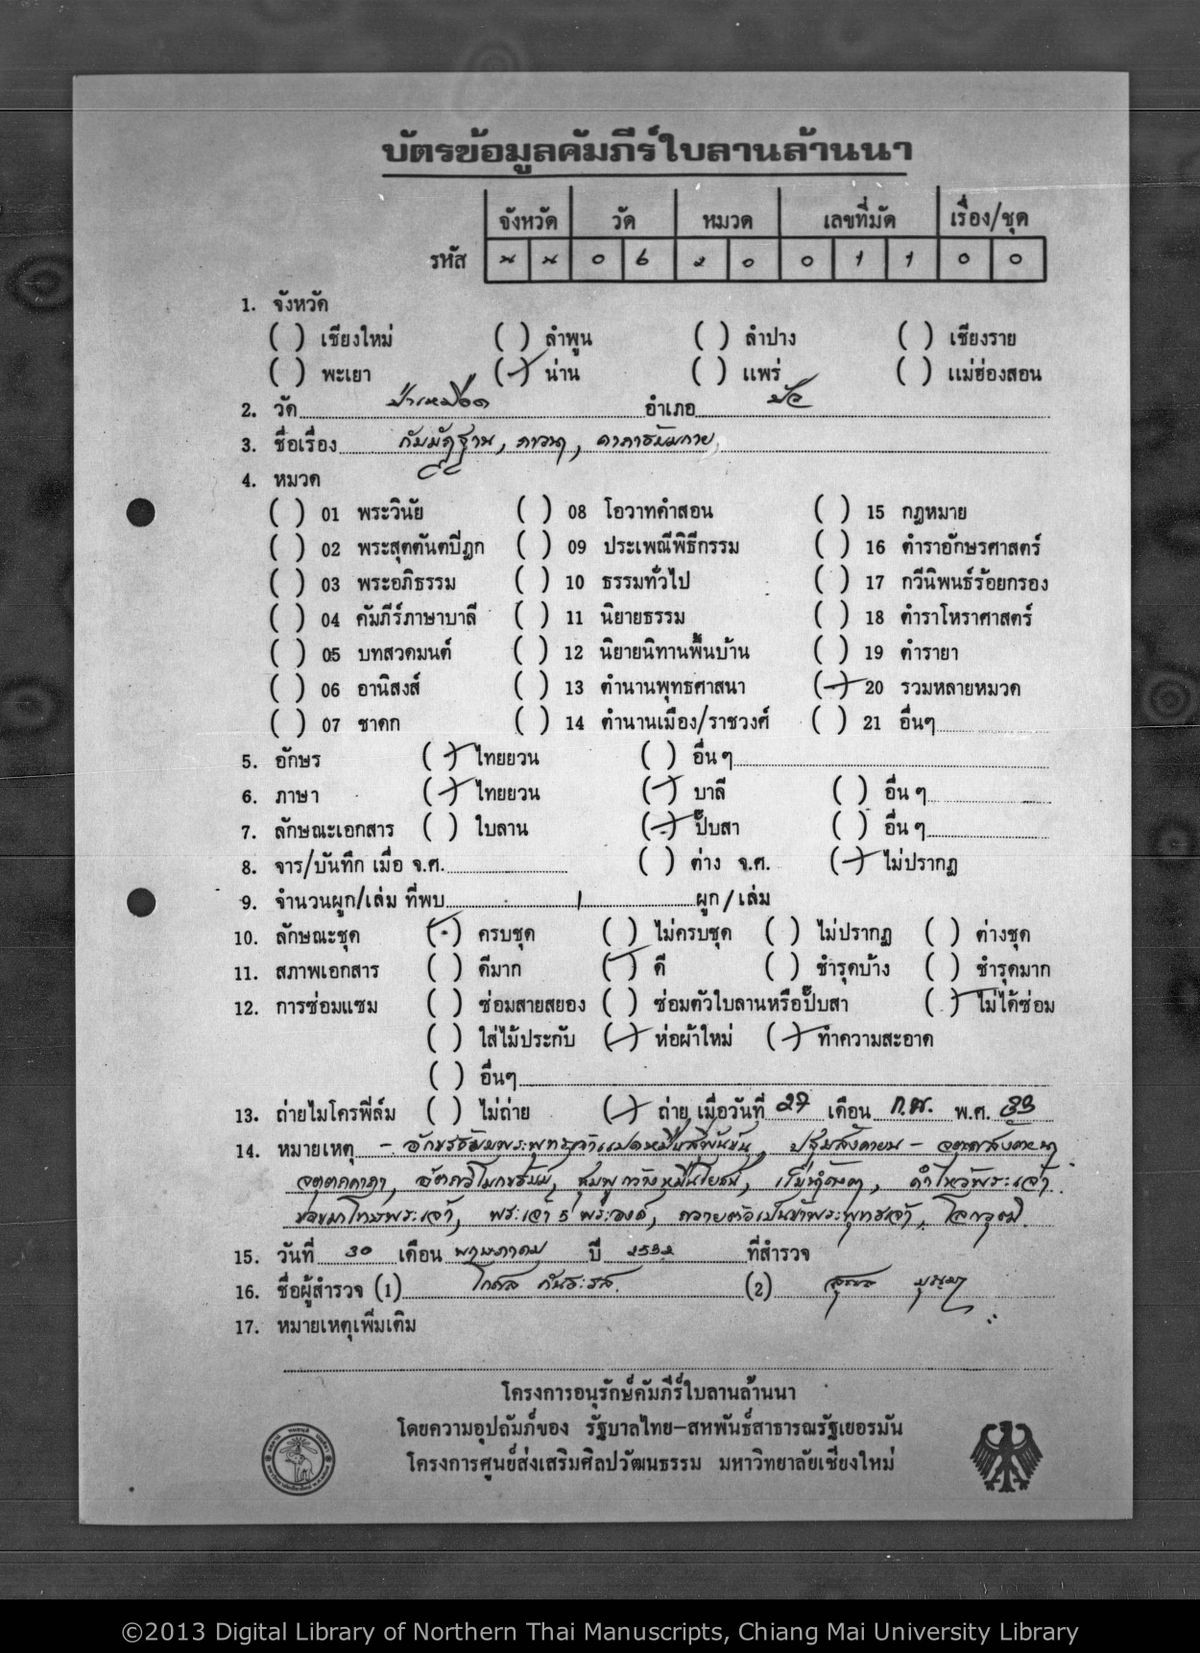 บัตรข้อมูลคัมภีร์ใบลานล้านนา
จังหวัด วัด หมวด เลขที่มัด เรื่อง/ชุด
รหัส น น 0 6 2 0 0 1 1 0 0
1. จังหวัด
( ) เชียงใหม่ ( ) ลำพูน ( ) ลำปาง ( ) เชียงราย
( ) พะเยา (/) น่าน ( ) แพร่ ( ) แม่ฮ่องสอน
2. วัด ป่าเหมือด อำเภอ ปัว
3. ชื่อเรื่อง กัมมัฏฐาน, ภาวนา, คาถาธัมมกาย,
4. หมวด
( ) 01 พระวินัย ( ) 08 โอวาทคำสอน ( ) 15 กฎหมาย
( ) 02 พระสุตตันตปิฎก ( ) 09 ประเพณีพิธีกรรม ( ) 16 ตำราอักษรศาสตร์
( ) 03 พระอภิธรรม ( ) 10 ธรรมทั่วไป ( ) 17 กวีนิพนธ์ร้อยกรอง
( ) 04 คัมภีร์ภาษาบาลี ( ) 11 นิยายธรรม ( ) 18 ตำราโหราศาสตร์
( ) 05 บทสวดมนต์ ( ) 12 นิยายนิทานพื้นบ้าน ( ) 19 ตำรายา
( ) 06 อานิสงส์ ( ) 13 ตำนานพุทธศาสนา (/) 20 รวมหลายหมวด
( ) 07 ชาดก ( ) 14 ตำนานเมือง/ราชวงศ์ ( ) 21 อื่นๆ
5. อักษร (/) ไทยยวน ( ) อื่น ๆ
6. ภาษา (/) ไทยยวน (/) บาลี ( ) อื่น ๆ
7. ลักษณะเอกสาร ( ) ใบลาน (/) ปั๊บสา ( ) อื่น ๆ
8. จาร/บันทึก เมื่อ จ.ศ. ( ) ต่าง จ.ศ. (/) ไม่ปรากฏ
9. จำนวนผูก/เล่ม ที่พบ 1 ผูก/เล่ม
10. ลักษณะชุด (/) ครบชุด ( ) ไม่ครบชุด ( ) ไม่ปรากฏ ( ) ต่างชุด
11. สภาพเอกสาร ( ) ดีมาก (/) ดี ( ) ชำรุดบ้าง ( ) ชำรุดมาก
12. การซ่อมแซม ( ) ซ่อมสายสยอง ( ) ซ่อมตัวใบลานหรือปั๊บสา (/) ไม่ได้ซ่อม
( ) ใส่ไม้ประกับ (/) ห่อผ้าใหม่ (/) ทำความสะอาด
( ) อื่นๆ
13. ถ่ายไมโครฟิล์ม ( ) ไม่ถ่าย (/) ถ่าย เมื่อวันที่ 27 เดือน ก.พ. พ.ศ. 33
14. หมายเหตุ - อักขรธัมมพระพุทธเจ้าแปดหมื่นสี่พันขัน,
ชมพูกว้างหมื่นโยชน์, คำไหว้พระเจ้า
พระเจ้า 5 พระองค์, ถวายตัวเป็นข้าพระพุทธเจ้า, โลกวุฒิ
15. วันที่ 30 เดือน พฤษภาคม ปี 2532 ที่สำรวจ
16. ชื่อผู้สำรวจ (1) (2)
17. หมายเหตุเพิ่มเติม
โครงการอนุรักษ์คัมภีร์ใบลานล้านนา
โดยความอุปถัมภ์ของ รัฐบาลไทย-สหพันธ์สาธารณรัฐเยอรมัน
โครงการศูนย์ส่งเสริมศิลปวัฒนธรรม มหาวิทยาลัยเชียงใหม่
©2013 Digital Library of Northern Thai Manuscripts, Chiang Mai University Library